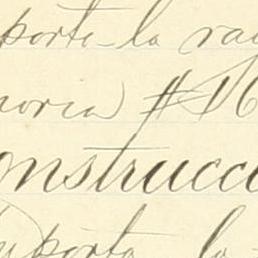 porta la ra
noria) #
onstrucci
porta la